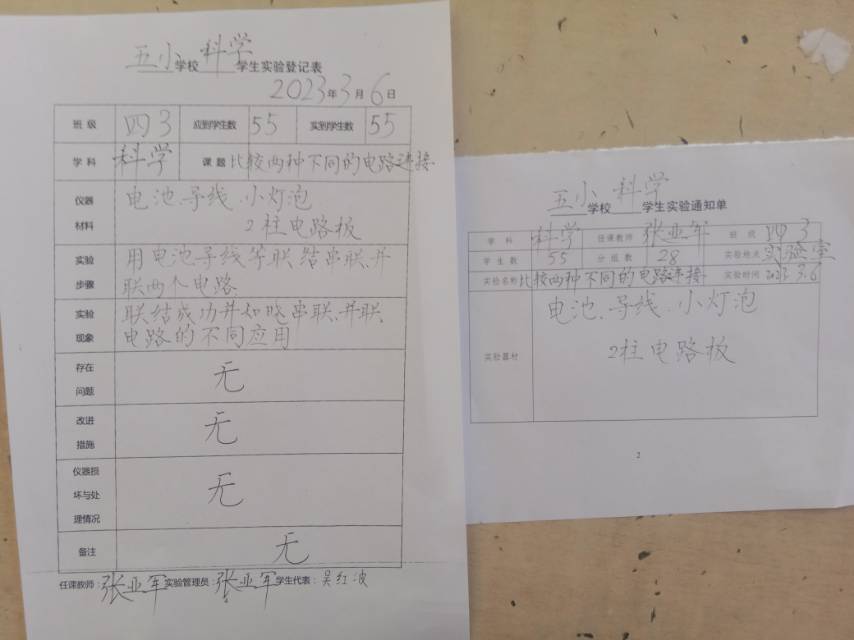 五小学校科学学生实验登记表
2023年3月6日
班级 四3 应到学生数 55 实到学生数 55
学科 科学 课题 比较两种不同的电路连接
仪器材料 电池、导线、小灯泡
2柱电路板
实验步骤 用电池导线等联结串联、并
联两个电路
实验现象 联结成功并知晓串联、并联
电路的不同应用
存在问题 无
改进措施 无
仪器损坏与处理情况 无
备注 无
任课教师:张亚军 实验管理员:张亚军 学生代表:吴红波
五小学校科学学生实验通知单
学科 科学 任课教师 张亚军 班级 四3
学生数 55 分组数 28 实验地点 实验室
实验名称 比较两种不同的电路连接 实验时间 2023.3.6
实验器材 电池、导线、小灯泡
2柱电路板
2